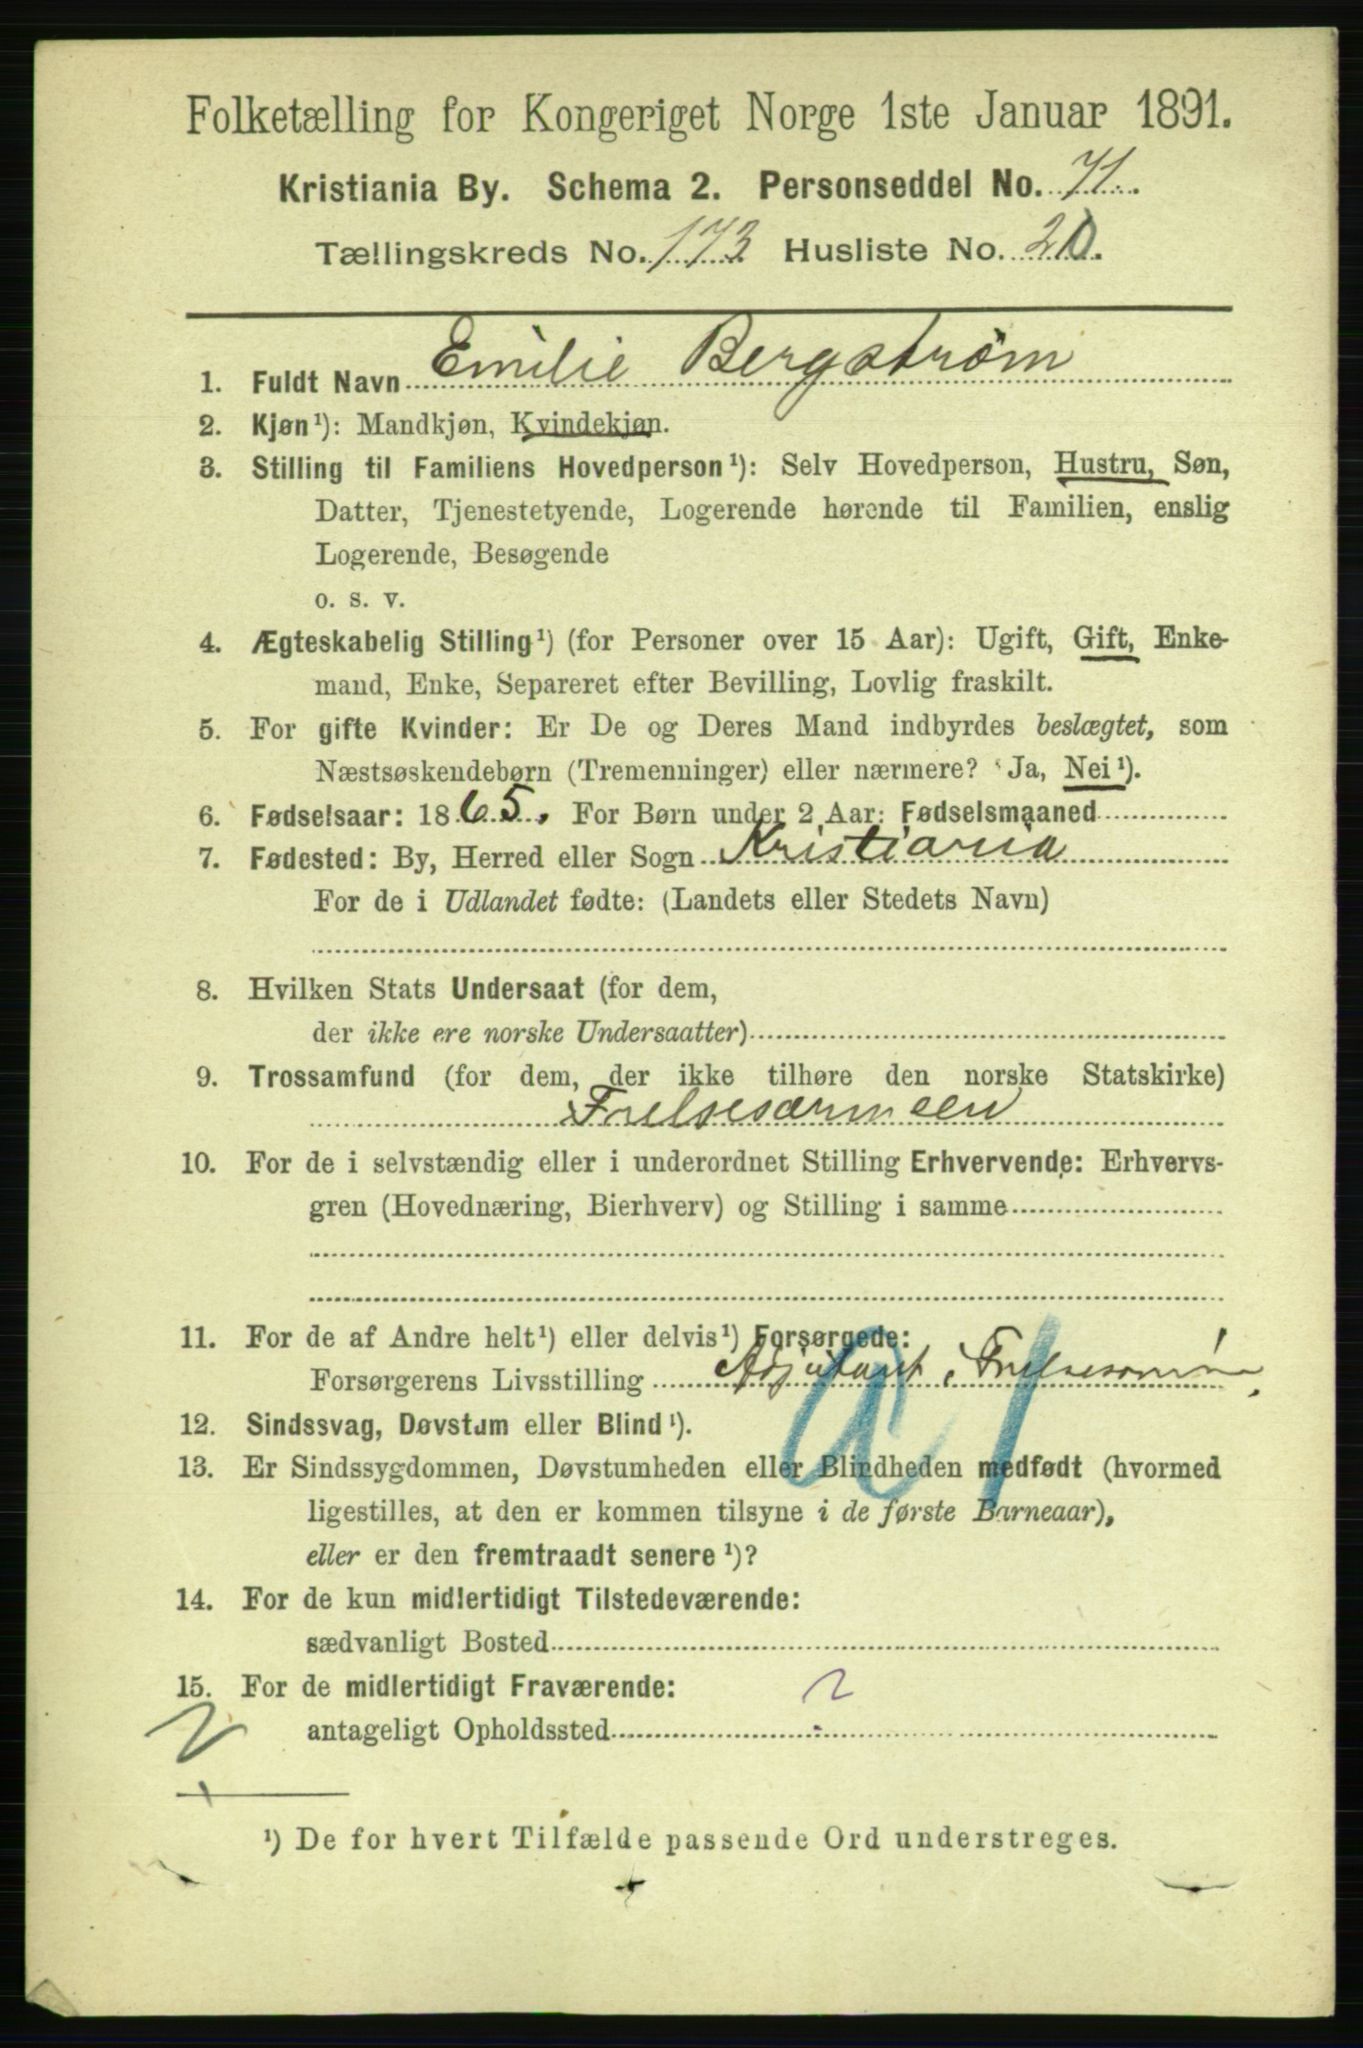 Folketælling for Kongeriget Norge 1ste Januar 1891.
Kristiania By. Schema 2. Personseddel No. 71.
Tællingskreds No. 173 Husliste No. 20.
1. Fuldt Navn Emilie Bergstrøm
2. Kjøn¹): Mandkjøn, Kvindekjøn.
3. Stilling til Familiens Hovedperson¹): Selv Hovedperson, Hustru, Søn,
Datter, Tjenestetyende, Logerende hørende til Familien, enslig
Logerende, Besøgende
o. s. v.
4. Ægteskabelig Stilling¹) (for Personer over 15 Aar): Ugift, Gift, Enke-
mand, Enke, Separeret efter Bevilling, Lovlig fraskilt.
5. For gifte Kvinder: Er De og Deres Mand indbyrdes beslægtet, som
Næstsøskendebørn (Tremenninger) eller nærmere? Ja, Nei¹).
6. Fødselsaar: 1865. For Børn under 2 Aar: Fødselsmaaned
7. Fødested: By, Herred eller Sogn Kristiania
For de i Udlandet fødte: (Landets eller Stedets Navn)
8. Hvilken Stats Undersaat (for dem,
der ikke ere norske Undersaatter)
9. Trossamfund (for dem, der ikke tilhøre den norske Statskirke)
Frelsesarmeen
10. For de i selvstændig eller i underordnet Stilling Erhvervende: Erhvervs-
gren (Hovednæring, Bierhverv) og Stilling i samme
11. For de af Andre helt¹) eller delvis¹) Forsørgede:
Forsørgerens Livsstilling Adjutant i
12. Sindssvag, Døvstum eller Blind¹).
13. Er Sindssygdommen, Døvstumheden eller Blindheden medfødt (hvormed
ligestilles, at den er kommen tilsyne i de første Barneaar),
eller er den fremtraadt senere¹)?
14. For de kun midlertidigt Tilstedeværende:
sædvanligt Bosted
15. For de midlertidigt Fraværende:
antageligt Opholdssted
¹) De for hvert Tilfælde passende Ord understreges.